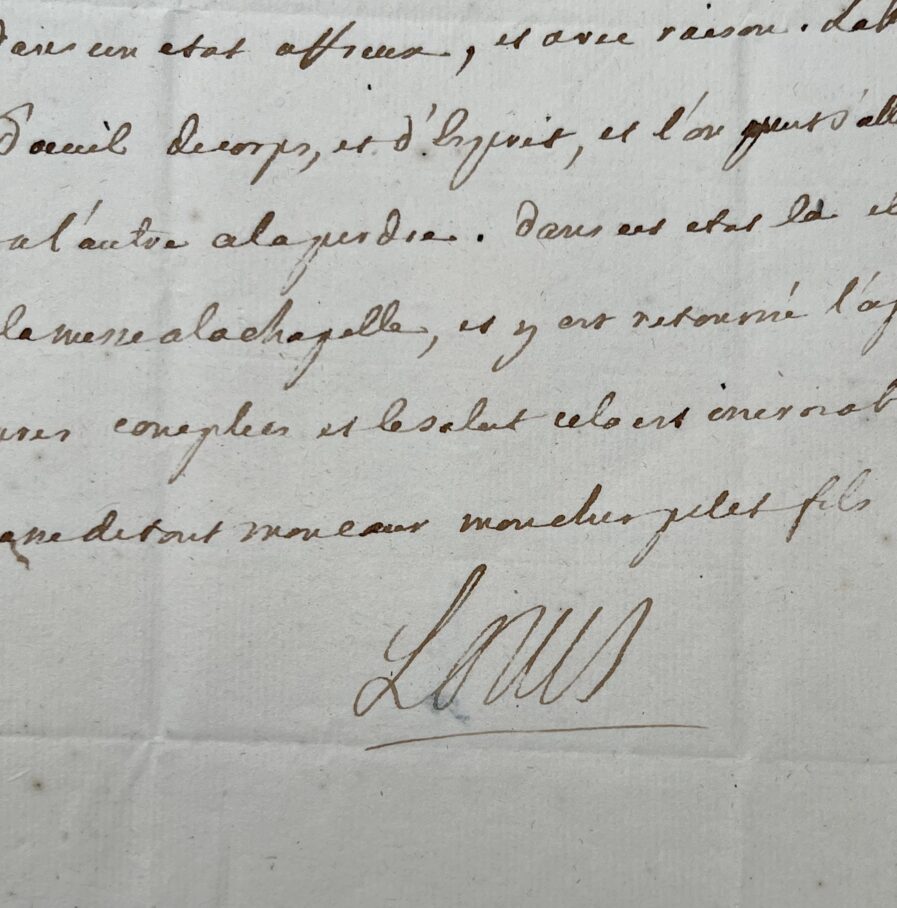 dans un etat affreux, et avec raison.
d'oeuil de corps, et d'Esprit, et l'on peut s'all
a l'autre a la perdre. Dans ces etat la il
la messe a la chapelle, et y est retourné l'ap
complies et le salut cela est incroiab
de tout mon coeur mon cher petit fils
Louis